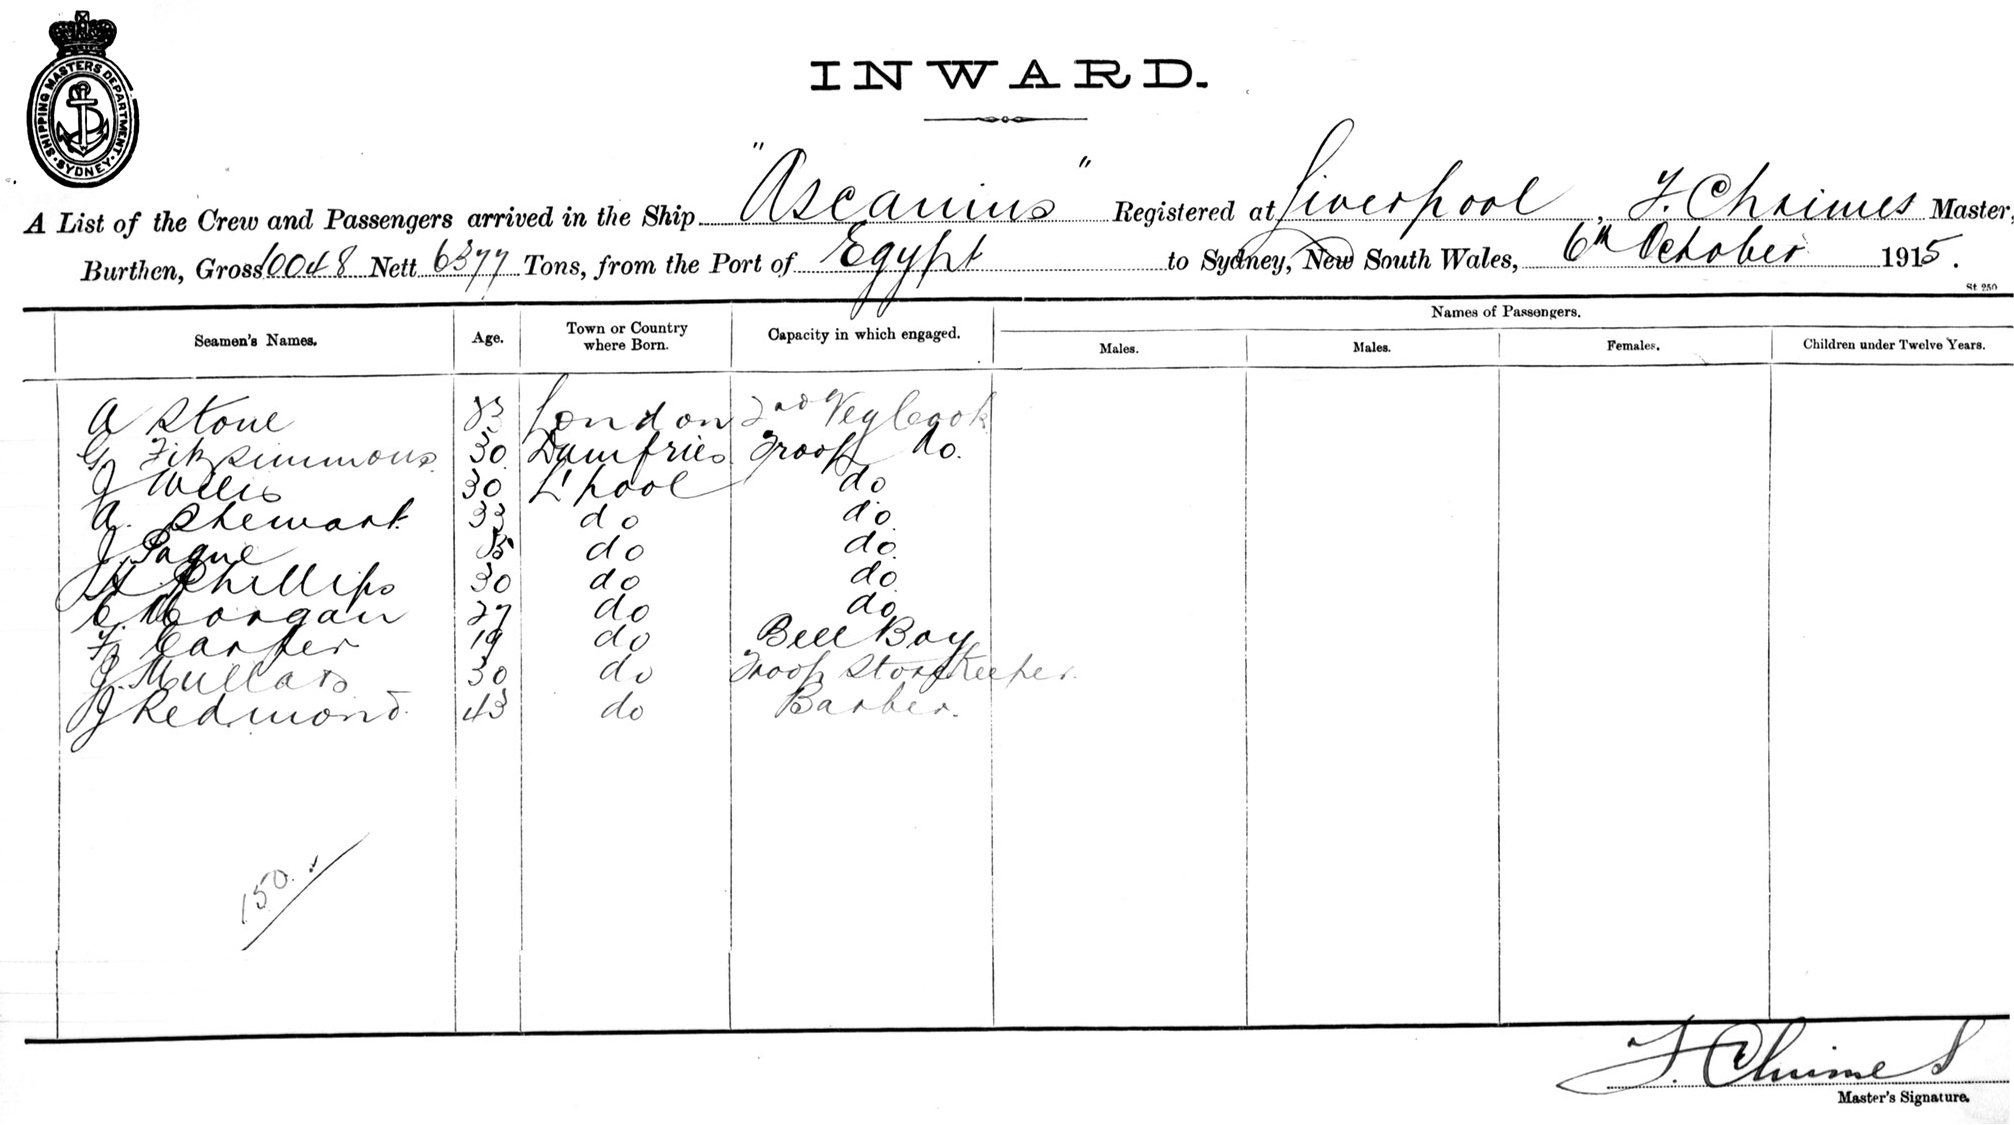 SHIPPING MASTERS DEPARTMENT. SYDNEY.
INWARD.
A List of the Crew and Passengers arrived in the Ship "Ascanius" Registered at Liverpool, F. Chrimes Master,
Burthen, Gross 10048 Nett 6377 Tons, from the Port of Egypt to Sydney, New South Wales, 6th October 1915.
St 250
Names of Passengers.
Seamen's Names. Age. Town or Country where Born. Capacity in which engaged. Males. Males. Females. Children under Twelve Years.
A Stone 33 London 2nd Veg Cook
G Fitzsimmons 30 Dumfries Troop do.
J Willis 30 L'pool do
A. Stewart 33 do do
J. 35 do do
H Phillips 30 do do
C. Morgan 27 do do
F. Carter 19 do Bell Boy
J. Mullars 30 do Troop Storekeeper.
J Redmond 43 do Barber.
150.
F. Chrimes
Master's Signature.